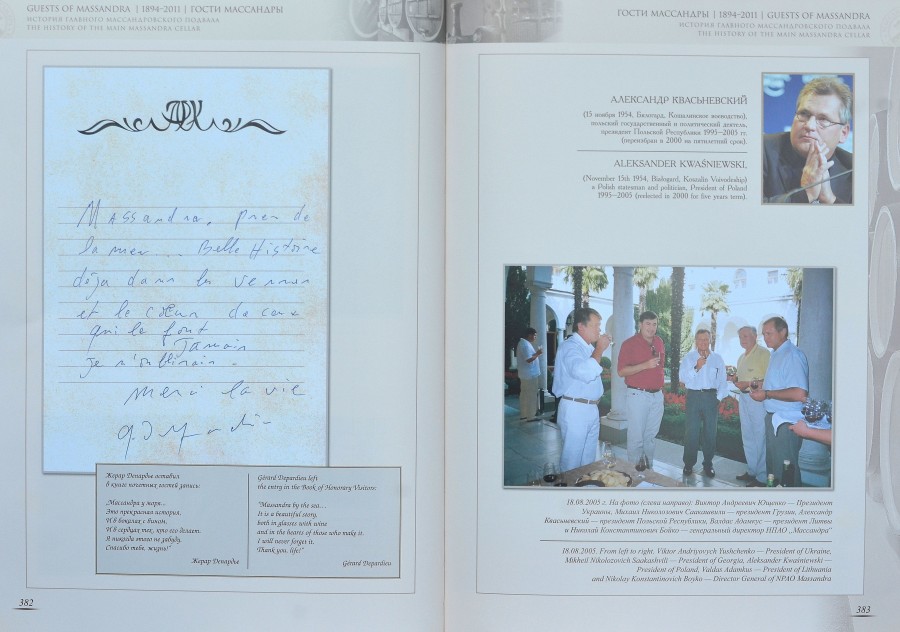 GUESTS OF MASSANDRA | 1894-2011 | ГОСТИ МАССАНДРЫ
ИСТОРИЯ ГЛАВНОГО МАССАНДРОВСКОГО ПОДВАЛА
THE HISTORY OF THE MAIN MASSANDRA CELLAR
Massandra, pres de
la mer... Belle Histoire
déja dans les verres
et le cœur de ceux
qui le font
Jamais
je n'oublierais.
merci la vie
Жерар Депардье оставил
в книге почетных гостей запись:
„Массандра у моря...
Это прекрасная история,
И в бокалах с вином,
И в сердцах тех, кто его делает.
Я никогда этого не забуду,
Спасибо тебе, жизнь!"
Жерар Депардье
Gérard Depardieu left
the entry in the Book of Honorary Visitors:
"Massandra by the sea...
It is a beautiful story,
both in glasses with wine
and in the hearts of those who make it.
I will never forget it.
Thank you, life!"
Gérard Depardieu
382
ГОСТИ МАССАНДРЫ | 1894-2011 | GUESTS OF MASSANDRA
ИСТОРИЯ ГЛАВНОГО МАССАНДРОВСКОГО ПОДВАЛА
THE HISTORY OF THE MAIN MASSANDRA CELLAR
АЛЕКСАНДР КВАСЬНЕВСКИЙ
(15 ноября 1954, Бялогард, Кошалинское воеводство),
польский государственный и политический деятель,
президент Польской Республики 1995–2005 гг.
(переизбран в 2000 на пятилетний срок).
ALEKSANDER KWAŚNIEWSKI,
(November 15th 1954, Bialogard, Koszalin Voivodeship)
a Polish statesman and politician, President of Poland
1995–2005 (reelected in 2000 for five years term).
18.08.2005 г. На фото (слева направо): Виктор Андреевич Ющенко — Президент
Украины, Михаил Николозович Саакашвили — президент Грузии, Александр
Квасьневский — президент Польской Республики, Валдас Адамкус — президент Литвы
и Николай Константинович Бойко — генеральный директор НПАО „Массандра"
18.08.2005. From left to right. Viktor Andriyovych Yushchenko — President of Ukraine,
Mikheil Nikolozovich Saakashvili — President of Georgia, Aleksander Kwaśniewski —
President of Poland, Valdas Adamkus — President of Lithuania
and Nikolay Konstantinovich Boyko — Director General of NPAO Massandra
383